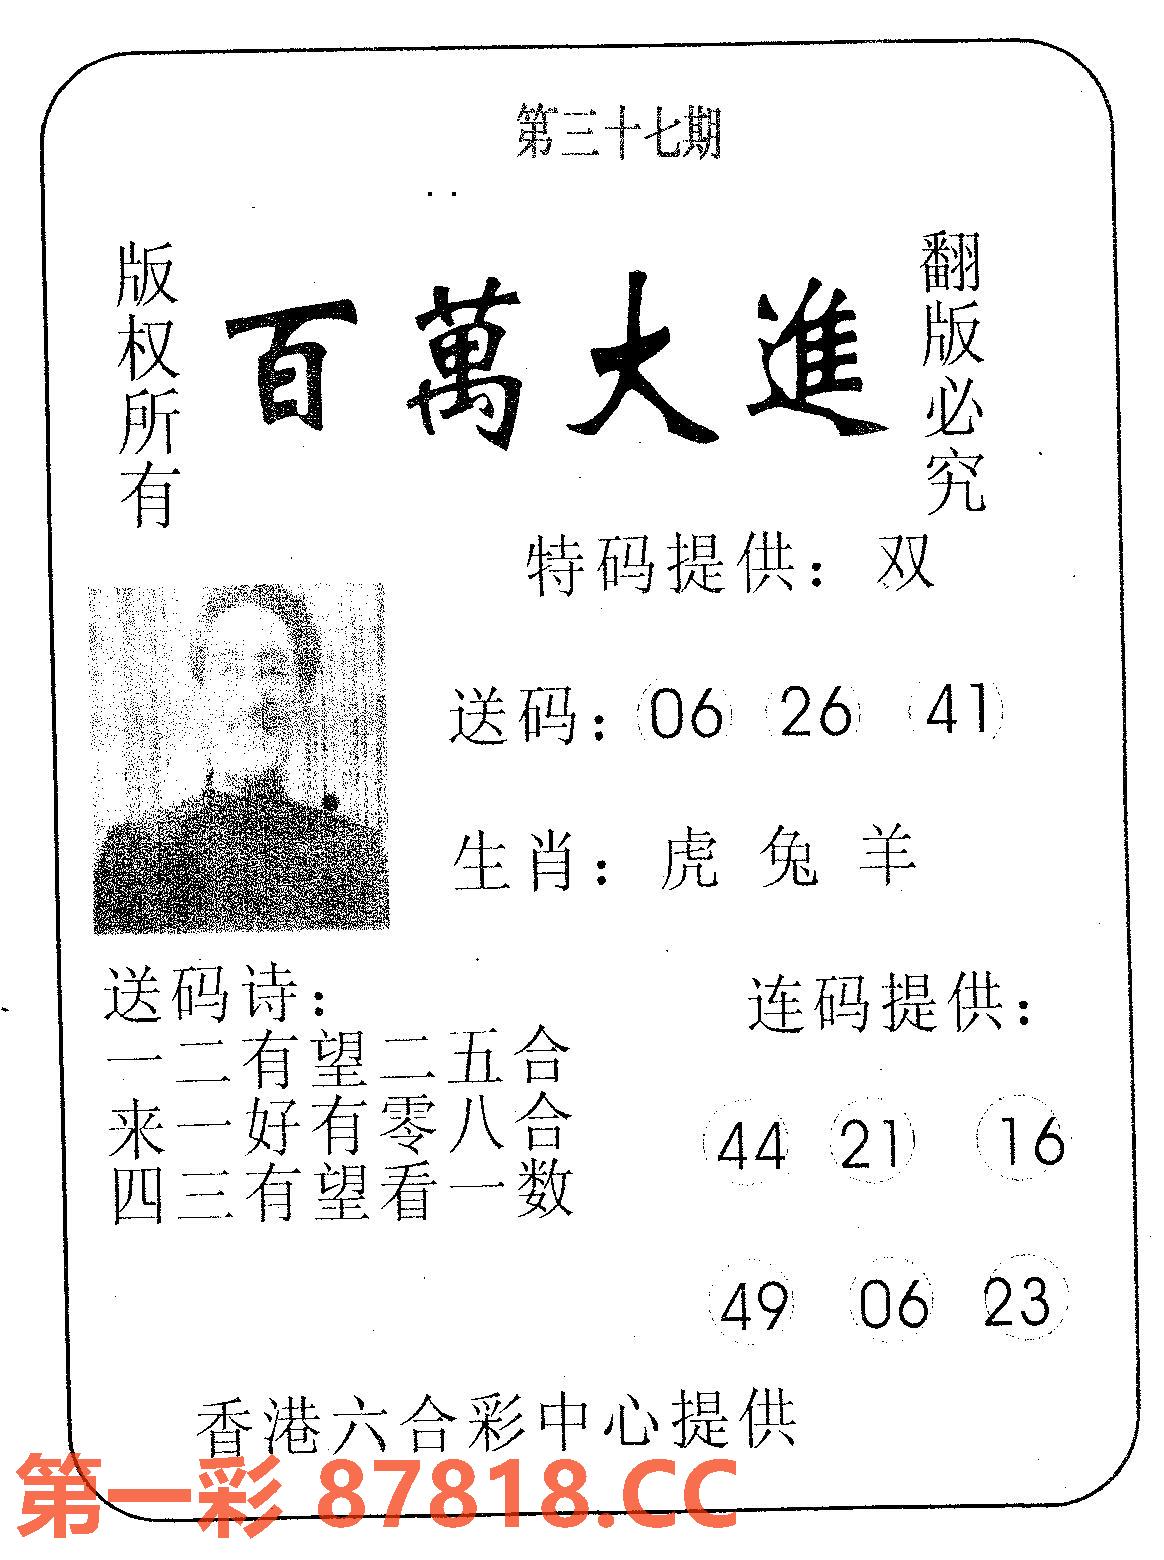 第三十七期
版权所有
百萬大進
翻版必究
特码提供：双
送码：06 26 41
生肖：虎 兔 羊
送码诗：
一二有望二五合
来一好有零八合
四三有望看一数
连码提供：
44 21 16
49 06 23
香港六合彩中心提供
第一彩 87818.CC